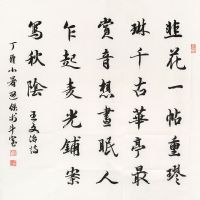 韭花一帖重璆
琳千古華亭最
賞音想晝眠人
乍起麦光鋪案
寫秋陰 王文治詩
丁酉小暑